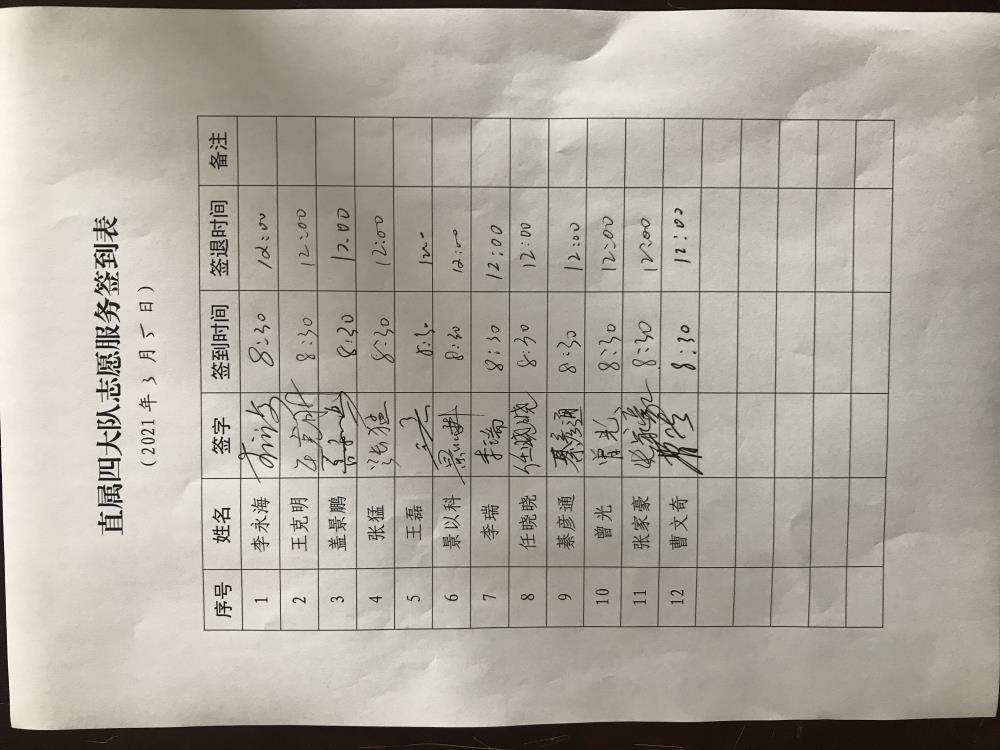 直属四大队志愿服务签到表
(2021年3月5日)
序号 姓名 签字 签到时间 签退时间 备注
1 李永海 8:30 12:00
2 王克明 8:30 12:00
3 盖景鹏 8:30 12.00
4 张猛 张猛 8:30 12:00
5 王磊 8:30 12:00
6 景以科 景以科 8:30 12:00
7 李瑞 李瑞 8:30 12:00
8 任晓晓 任晓晓 8:30 12:00
9 綦彦通 綦彦通 8:30 12:00
10 曾光 曾光 8:30 12:00
11 张家豪 张家豪 8:30 12:00
12 曹文奇 8:30 12:00